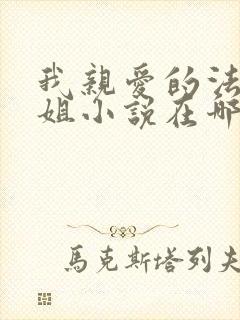 我親愛的法
姐小說在哪
馬克斯塔列夫